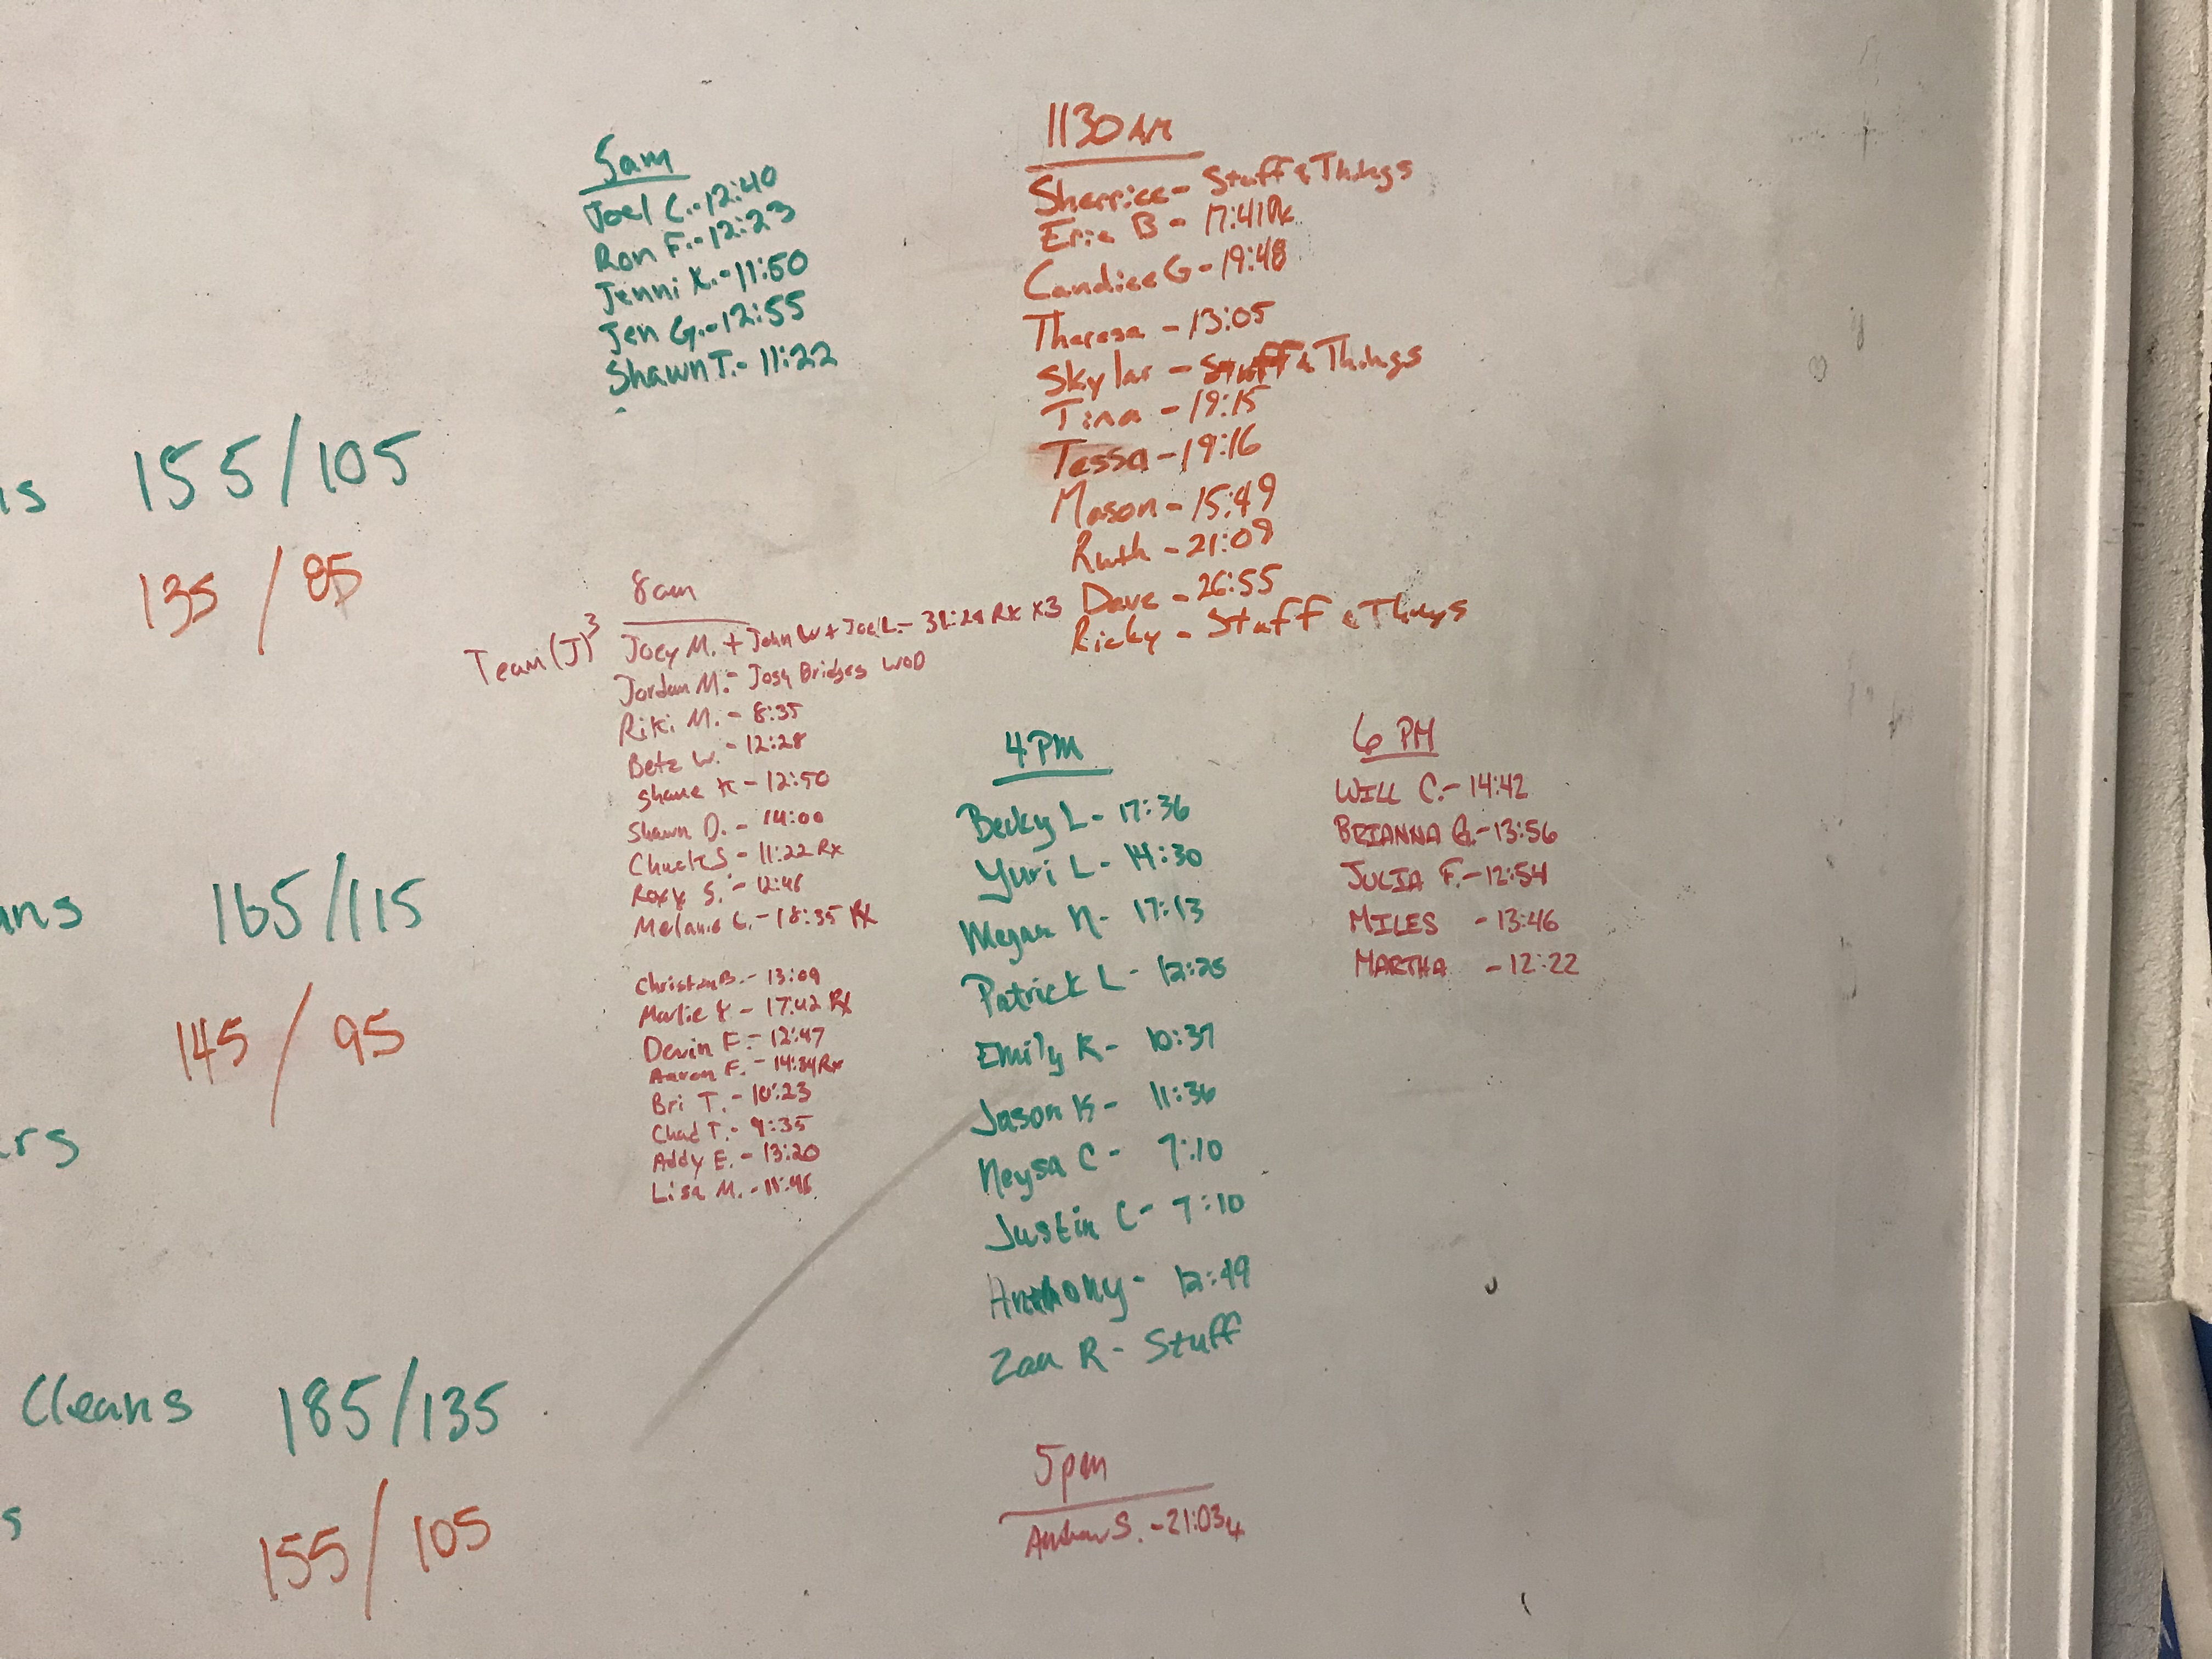 5am
Joel C. - 12:40
Ron F. - 12:23
Jenni K. - 11:50
Jen G. - 12:55
Shawn T. - 11:22
1130 AM
Sherrice - Stuff & Things
Eric B - 17:41 Rx
Candice G - 19:48
Theresa - 13:05
Skylar - Stuff & Things
Tina - 19:15
Tessa - 19:16
Mason - 15:49
Ruth - 21:09
Dave - 26:55
Ricky - Stuff & Things
is 155/105
135 / 85
8am
Team (J)³ Joey M. + John W + Joel L. - Rx x3
Jordan M. - Josh Bridges WOD
Riki M. - 8:35
Betz W. - 12:28
Shane K - 12:50
Shawn D. - 14:00
Chuck S - 11:22 Rx
Roxy S. - 12:46
Melanie C. - 18:35 Rx
Christen B. - 13:09
Marlie Y - 17:42 Rx
Devin F. - 12:47
Aaron F. - 14:34 Rx
Bri T. - 10:23
Chad T. - 9:35
Addy E. - 13:20
Lisa M. - 11:46
4 PM
Becky L - 17:36
Yuri L - 14:30
Megan N - 17:13
Patrick L - 12:25
Emily K - 10:37
Jason K - 11:36
Neysa C - 7:10
Justin C - 7:10
Anthony - 12:49
Zan R - Stuff
6 PM
WILL C. - 14:42
BRIANNA G. - 13:56
JULIA F. - 12:54
MILES - 13:46
MARTHA - 12:22
ans 165/115
145 / 95
rs
Cleans 185/135
s
155/105
5pm
Andrew S. - 21:03